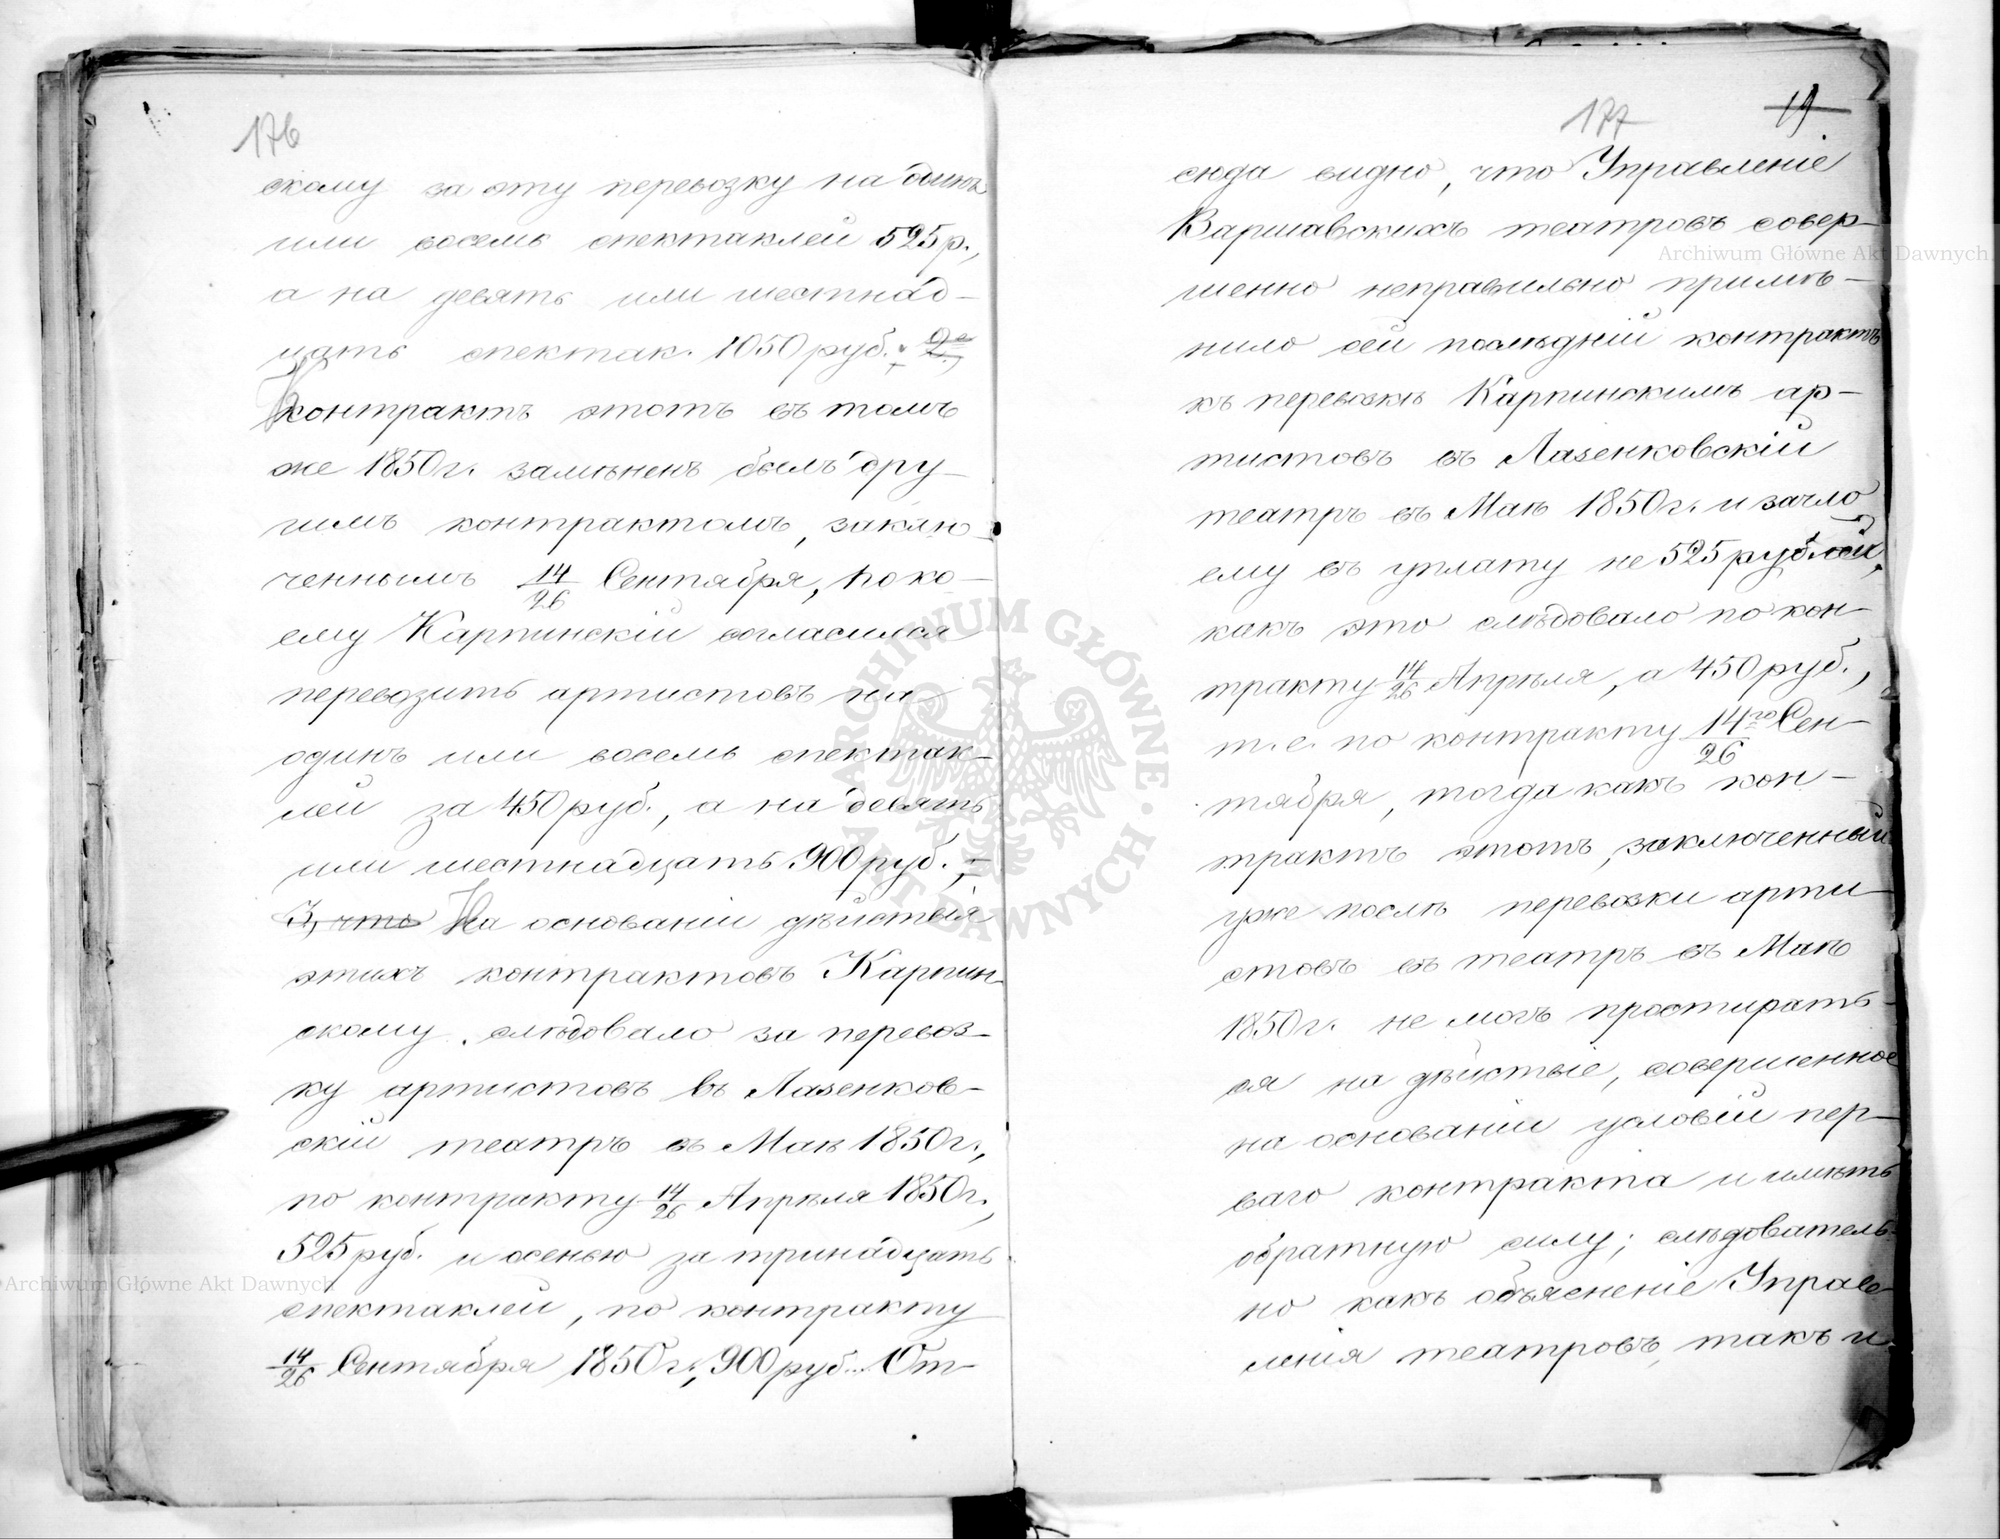 176
скому за эту перевозку на одинъ
или восемь спектаклей 525 р.,
а на девять или шестнад-
цать спектак. 1050 руб.; 2е,
Контрактъ этотъ въ томъ
же 1850 г. замѣненъ былъ дру-
гимъ контрактомъ, заклю-
ченнымъ 14/26 Сентября, по ко-
ему Карпинскій согласился
перевозить артистовъ на
одинъ или восемь спектак-
лей за 450 руб., а на девять
или шестнадцать 900 руб.,
3, что На основаніи дѣйствія
этихъ контрактовъ Карпин-
скому слѣдовало за перевоз-
ку артистовъ въ Лазенков-
скій театръ въ Маѣ 1850 г.,
по контракту 14/26 Апрѣля 1850 г.,
525 руб. и осенью за тринадцать
спектаклей, по контракту
14/26 Сентября 1850 г., 900 руб. От-
177 19
сюда видно, что Управленіе
Варшавскихъ театровъ совер-
шенно неправильно примѣ-
нило сей послѣдній контрактъ
къ перевозкѣ Карпинскимъ ар-
тистовъ въ Лазенковскій
театръ въ Маѣ 1850 г. и зачло
ему въ уплату не 525 рублей,
какъ это слѣдовало по кон-
тракту 14/26 Апрѣля, а 450 руб.,
т. е. по контракту 14го/26 Сен-
тября, тогда какъ кон-
трактъ этотъ, заключенный
уже послѣ перевозки арти-
стовъ въ театръ въ Маѣ
1850 г. не могъ простирать-
ся на дѣйствіе, совершенное
на основаніи условій пер-
ваго контракта и имѣть
обратную силу; слѣдователь-
но какъ объясненіе Управ-
ленія театровъ, такъ и
Archiwum Główne Akt Dawnych
Archiwum Główne Akt Dawnych
ARCHIWUM GŁÓWNE · AKT DAWNYCH ·